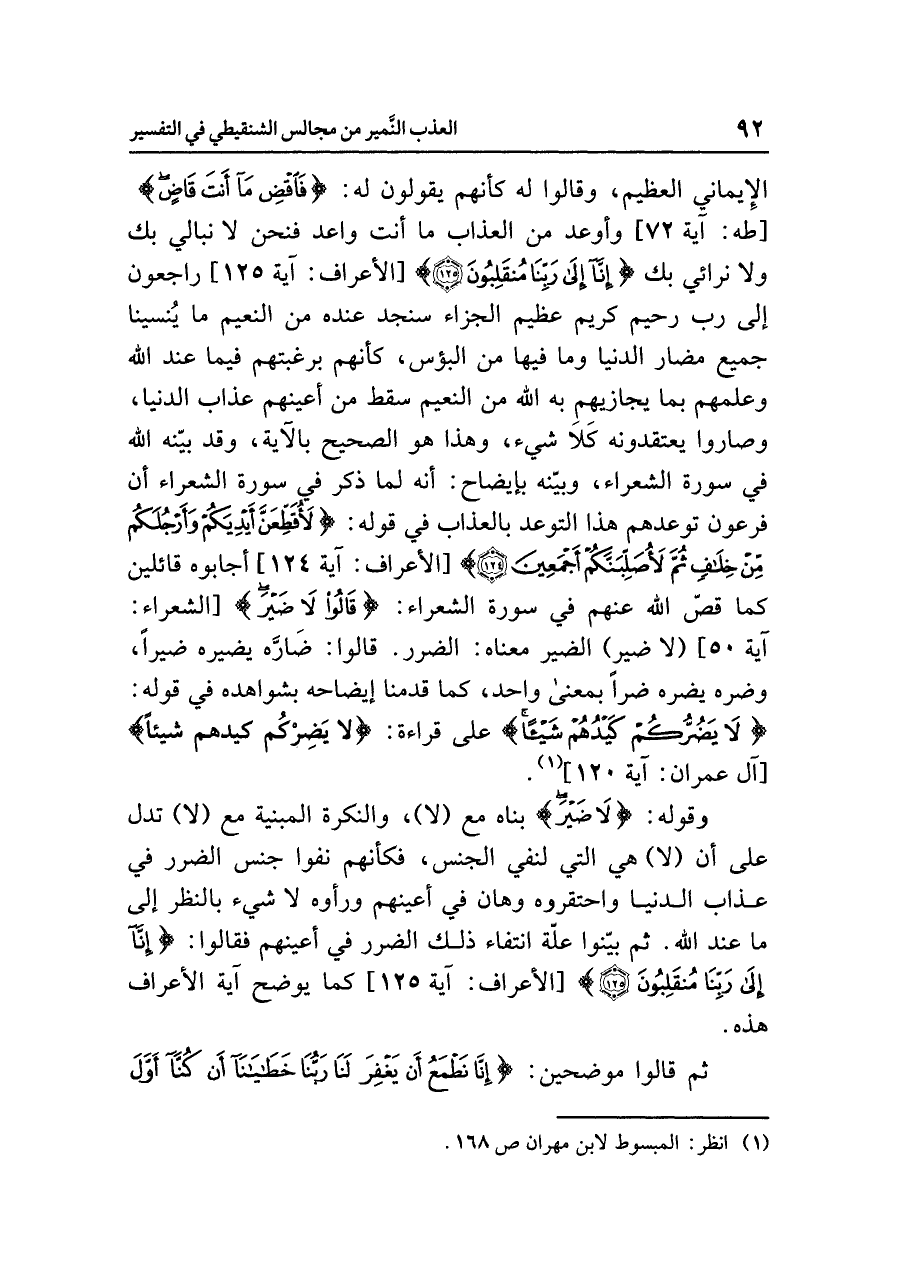 ٩٢ العذب النَّمير من مجالس الشنقيطي في التفسير
الإيماني العظيم، وقالوا له كأنهم يقولون له: ﴿فَٱقۡضِ مَآ أَنتَ قَاضٍۖ﴾
[طه: آية ٧٢] وأوعد من العذاب ما أنت واعد فنحن لا نبالي بك
ولا نرائي بك ﴿إِنَّآ إِلَىٰ رَبِّنَا مُنقَلِبُونَ ١٢٥﴾ [الأعراف: آية ١٢٥] راجعون
إلى رب رحيم كريم عظيم الجزاء سنجد عنده من النعيم ما يُنسينا
جميع مضار الدنيا وما فيها من البؤس، كأنهم برغبتهم فيما عند الله
وعلمهم بما يجازيهم به الله من النعيم سقط من أعينهم عذاب الدنيا،
وصاروا يعتقدونه كَلَا شيء، وهذا هو الصحيح بالآية، وقد بيّنه الله
في سورة الشعراء، وبيّنه بإيضاح: أنه لما ذكر في سورة الشعراء أن
فرعون توعدهم هذا التوعد بالعذاب في قوله: ﴿لَأُقَطِّعَنَّ أَيۡدِيَكُمۡ وَأَرۡجُلَكُم
مِّنۡ خِلَٰفٖ ثُمَّ لَأُصَلِّبَنَّكُمۡ أَجۡمَعِينَ ١٢٤﴾ [الأعراف: آية ١٢٤] أجابوه قائلين
كما قصّ الله عنهم في سورة الشعراء: ﴿قَالُواْ لَا ضَيۡرَۖ﴾ [الشعراء:
آية ٥٠] (لا ضير) الضير معناه: الضرر. قالوا: ضَارَّه يضيره ضيراً،
وضره يضره ضراً بمعنىٰ واحد، كما قدمنا إيضاحه بشواهده في قوله:
﴿لَا يَضُرُّكُمۡ كَيۡدُهُمۡ شَيۡـًٔاۚ﴾ على قراءة: ﴿لا يَضِرْكُم كيدهم شيئاً﴾
[آل عمران: آية ١٢٠](١).
وقوله: ﴿لَا ضَيۡرَۖ﴾ بناه مع (لا)، والنكرة المبنية مع (لا) تدل
على أن (لا) هي التي لنفي الجنس، فكأنهم نفوا جنس الضرر في
عذاب الدنيا واحتقروه وهان في أعينهم ورأوه لا شيء بالنظر إلى
ما عند الله. ثم بيّنوا علّة انتفاء ذلك الضرر في أعينهم فقالوا: ﴿إِنَّآ
إِلَىٰ رَبِّنَا مُنقَلِبُونَ ١٢٥﴾ [الأعراف: آية ١٢٥] كما يوضح آية الأعراف
هذه.
ثم قالوا موضحين: ﴿إِنَّا نَطۡمَعُ أَن يَغۡفِرَ لَنَا رَبُّنَا خَطَٰيَٰنَآ أَن كُنَّآ أَوَّلَ
(١) انظر: المبسوط لابن مهران ص ١٦٨.